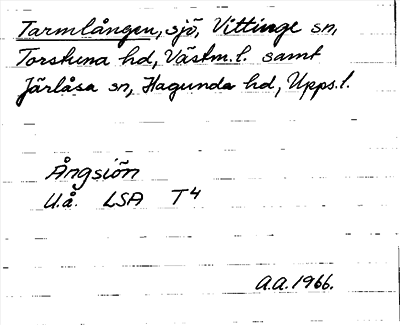 Tarmlången, sjö, Vittinge sn,
Torstuna hd, Västm.l. samt
Järlåsa sn, Hagunda hd, Upps.l.
Ångsiön
U.å. LSA T4
A.A. 1966.